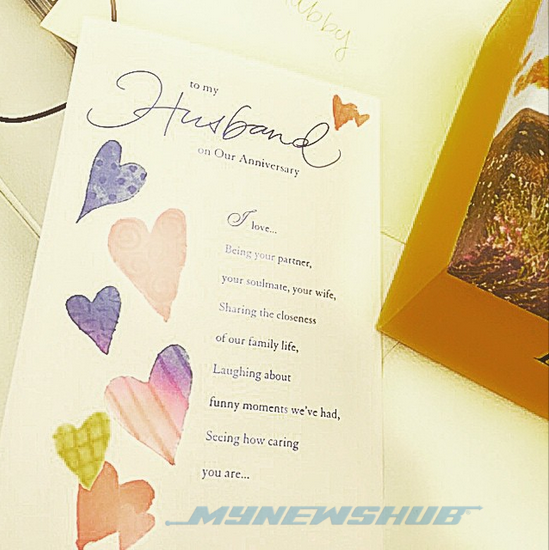 ubby
to my
Husband
on Our Anniversary
I love...
Being your partner,
your soulmate, your wife,
Sharing the closeness
of our family life,
Laughing about
funny moments we've had,
Seeing how caring
you are...
MYNEWSHUB